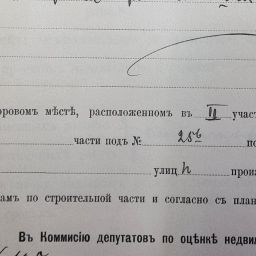 оровомъ мѣстѣ, расположенномъ въ II учас
части подъ № 256 по
улиц ѣ прои
амъ по строительной части и согласно съ план
Въ Коммисію депутатовъ по оцѣнкѣ недвиж